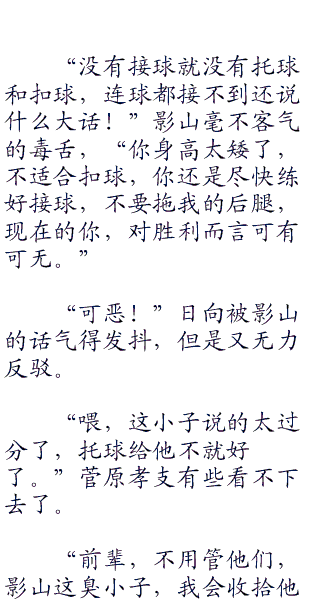 “没有接球就没有托球
和扣球，连球都接不到还说
什么大话！”影山毫不客气
的毒舌，“你身高太矮了，
不适合扣球，你还是尽快练
好接球，不要拖我的后腿，
现在的你，对胜利而言可有
可无。”
“可恶！”日向被影山
的话气得发抖，但是又无力
反驳。
“喂，这小子说的太过
分了，托球给他不就好
了。”菅原孝支有些看不下
去了。
“前辈，不用管他们，
影山这臭小子，我会收拾他